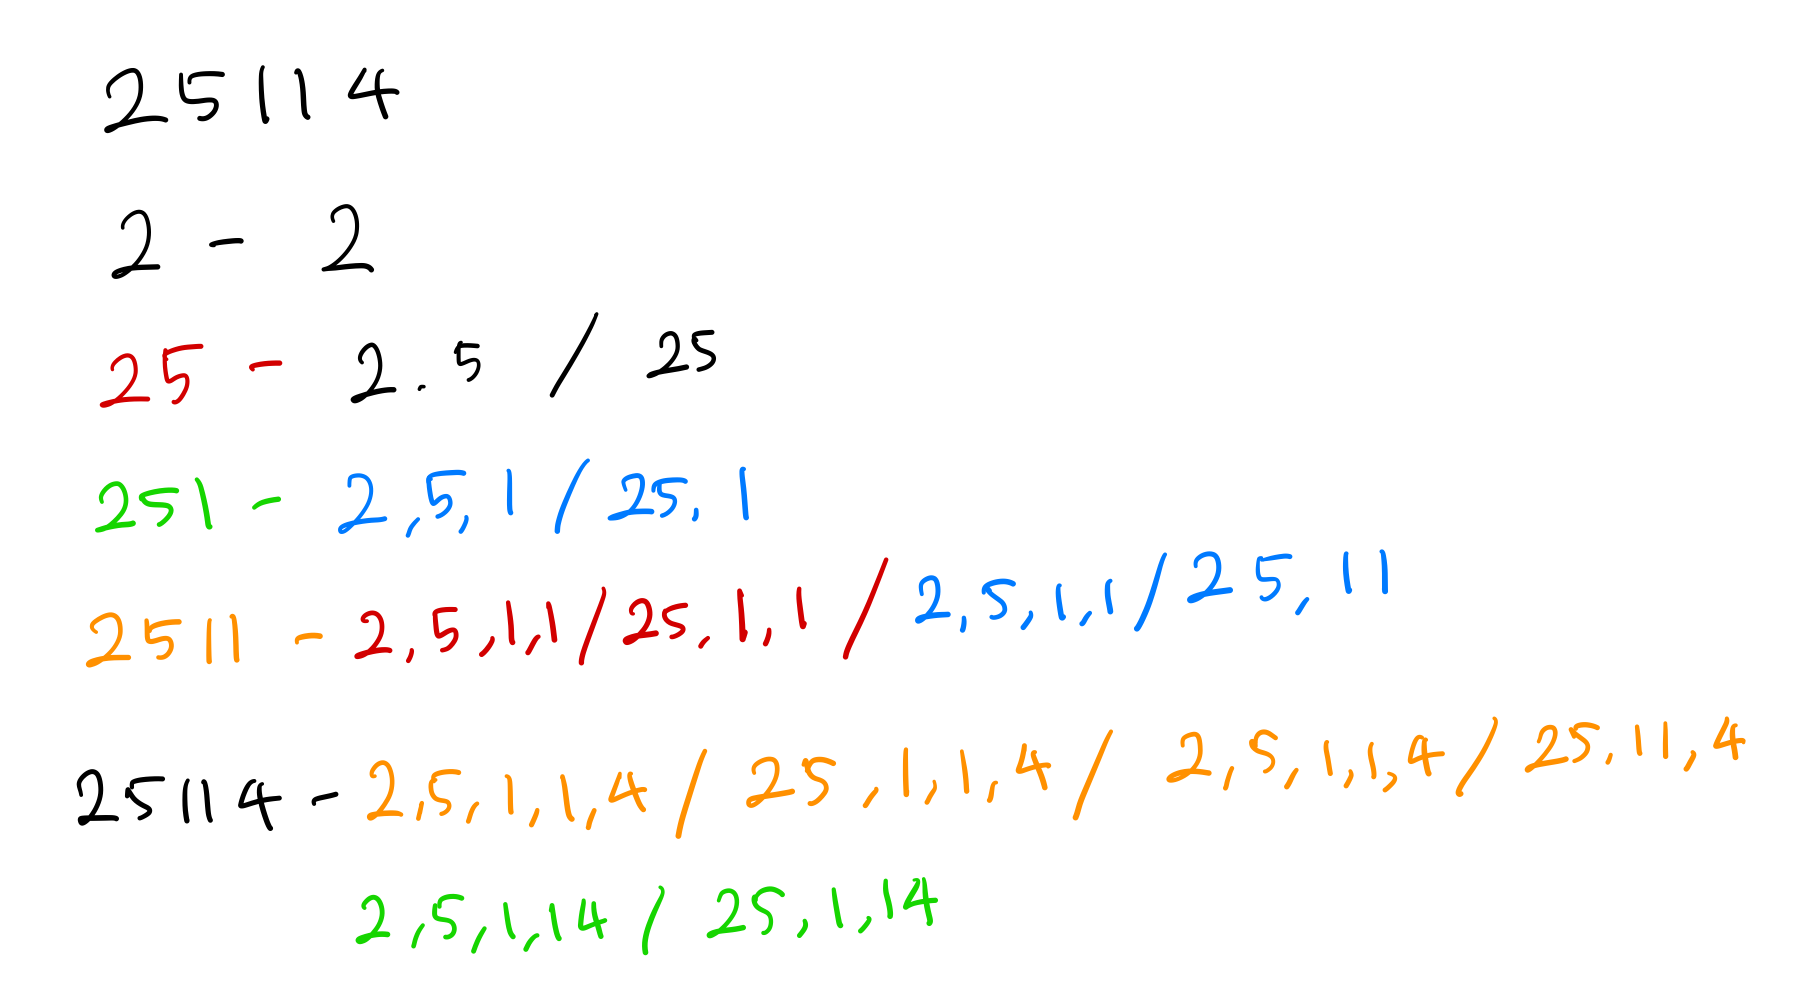 25114
2 - 2
25 - 2.5 / 25
251 - 2,5,1 / 25,1
2511 - 2,5,1,1 / 25,1,1 / 2,5,1,1 / 25,11
25114 - 2,5,1,1,4 / 25,1,1,4 / 2,5,1,1,4 / 25,11,4
2,5,1,14 / 25,1,14